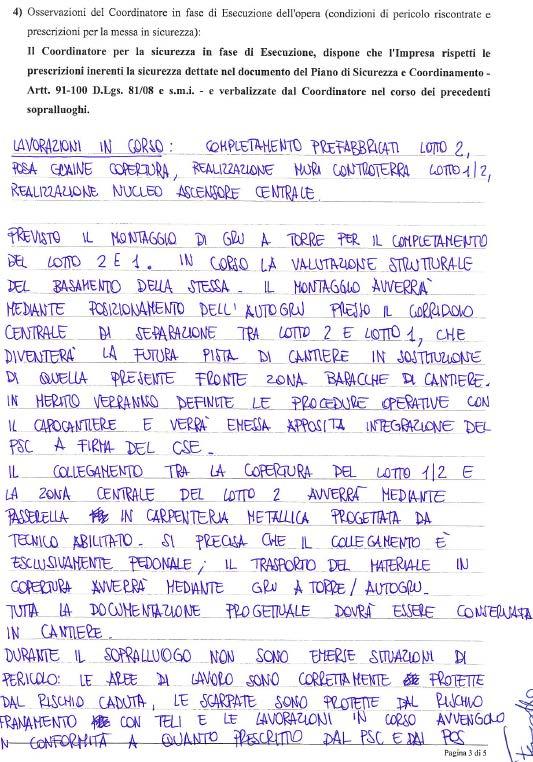 4) Osservazioni del Coordinatore in fase di Esecuzione dell'opera (condizioni di pericolo riscontrate e
prescrizioni per la messa in sicurezza):
Il Coordinatore per la sicurezza in fase di Esecuzione, dispone che l'Impresa rispetti le
prescrizioni inerenti la sicurezza dettate nel documento del Piano di Sicurezza e Coordinamento -
Artt. 91-100 D.Lgs. 81/08 e s.m.i. - e verbalizzate dal Coordinatore nel corso dei precedenti
sopralluoghi.
LAVORAZIONI IN CORSO: COMPLETAMENTO PREFABBRICATI LOTTO 2,
POSA GUAINE COPERTURA, REALIZZAZIONE MURI CONTROTERRA LOTTO 1/2,
REALIZZAZIONE NUCLEO ASCENSORE CENTRALE.
PREVISTO IL MONTAGGIO DI GRU A TORRE PER IL COMPLETAMENTO
DEL LOTTO 2 E 1. IN CORSO LA VALUTAZIONE STRUTTURALE
DEL BASAMENTO DELLA STESSA. IL MONTAGGIO AVVERRÀ
MEDIANTE POSIZIONAMENTO DELL'AUTOGRU PRESSO IL CORRIDOIO
CENTRALE DI SEPARAZIONE TRA LOTTO 2 E LOTTO 1, CHE
DIVENTERÀ LA FUTURA PISTA DI CANTIERE IN SOSTITUZIONE
DI QUELLA PRESENTE FRONTE ZONA BARACCHE DI CANTIERE.
IN MERITO VERRANNO DEFINITE LE PROCEDURE OPERATIVE CON
IL CAPOCANTIERE E VERRÀ EMESSA APPOSITA INTEGRAZIONE DEL
PSC A FIRMA DEL CSE.
IL COLLEGAMENTO TRA LA COPERTURA DEL LOTTO 1/2 E
LA ZONA CENTRALE DEL LOTTO 2 AVVERRÀ MEDIANTE
PASSERELLA IN CARPENTERIA METALLICA PROGETTATA DA
TECNICO ABILITATO. SI PRECISA CHE IL COLLEGAMENTO È
ESCLUSIVAMENTE PEDONALE; IL TRASPORTO DEL MATERIALE IN
COPERTURA AVVERRÀ MEDIANTE GRU A TORRE/AUTOGRU.
TUTTA LA DOCUMENTAZIONE PROGETTUALE DOVRÀ ESSERE CONSERVATA
IN CANTIERE.
DURANTE IL SOPRALLUOGO NON SONO EMERSE SITUAZIONI DI
PERICOLO: LE AREE DI LAVORO SONO CORRETTAMENTE PROTETTE
DAL RISCHIO CADUTA, LE SCARPATE SONO PROTETTE DAL RISCHIO
FRANAMENTO CON TELI E LE LAVORAZIONI IN CORSO AVVENGONO
IN CONFORMITÀ A QUANTO PRESCRITTO DAL PSC E DAI POS
Pagina 3 di 5